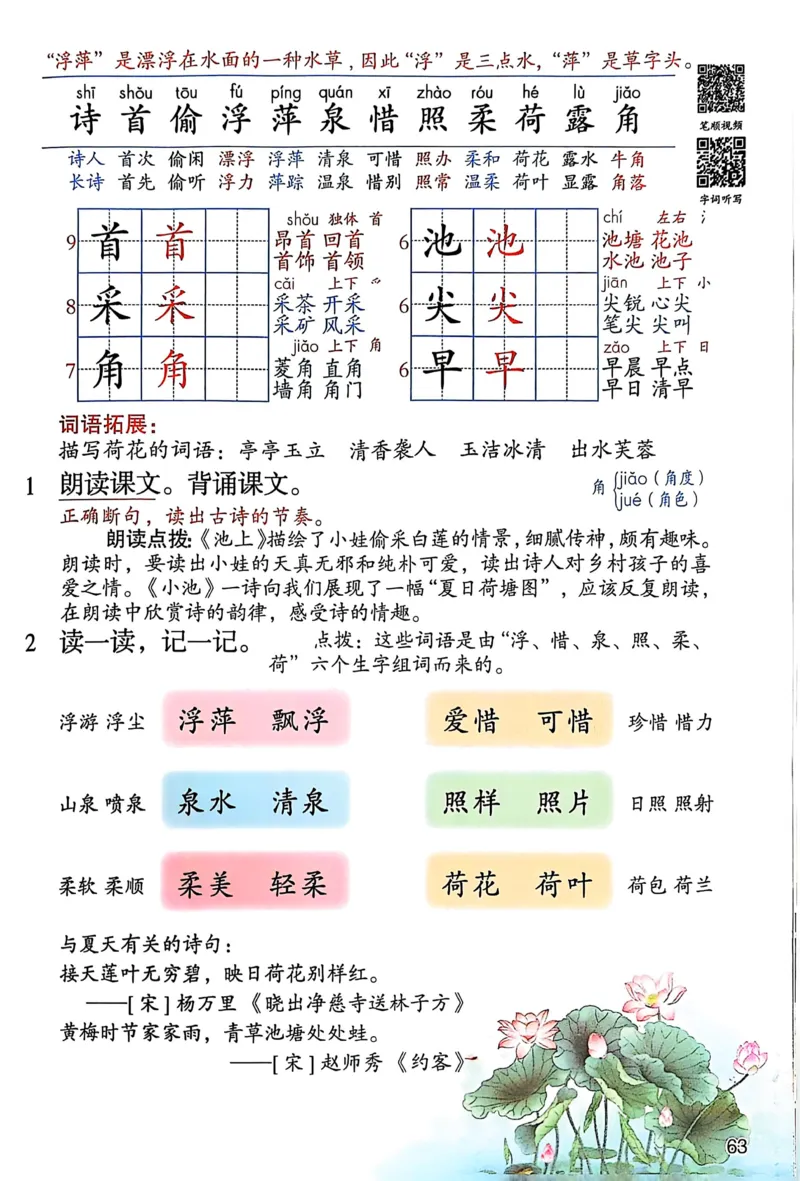 “浮萍”是漂浮在水面的一种水草，因此“浮”是三点水，“萍”是草字头。
shī shǒu tōu fú píng quán xī zhào róu hé lù jiǎo
诗 首 偷 浮 萍 泉 惜 照 柔 荷 露 角
笔顺视频
诗人 首次 偷闲 漂浮 浮萍 清泉 可惜 照办 柔和 荷花 露水 牛角
长诗 首先 偷听 浮力 萍踪 温泉 惜别 照常 温柔 荷叶 显露 角落
字词听写
9 首 首 shǒu 独体 首
昂首 回首
首饰 首领
6 池 池 chí 左右 氵
池塘 花池
水池 池子
8 采 采 cǎi 上下 爫
采茶 开采
采矿 风采
6 尖 尖 jiān 上下 小
尖锐 心尖
笔尖 尖叫
7 角 角 jiǎo 上下 角
菱角 直角
墙角 角门
6 早 早 zǎo 上下 日
早晨 早点
早日 清早
词语拓展：
描写荷花的词语：亭亭玉立 清香袭人 玉洁冰清 出水芙蓉
1 朗读课文。背诵课文。
角 { jiǎo（角度）
jué（角色）
正确断句，读出古诗的节奏。
朗读点拨：《池上》描绘了小娃偷采白莲的情景，细腻传神，颇有趣味。
朗读时，要读出小娃的天真无邪和纯朴可爱，读出诗人对乡村孩子的喜
爱之情。《小池》一诗向我们展现了一幅“夏日荷塘图”，应该反复朗读，
在朗读中欣赏诗的韵律，感受诗的情趣。
2 读一读，记一记。 点拨：这些词语是由“浮、惜、泉、照、柔、
荷”六个生字组词而来的。
浮游 浮尘 浮萍 飘浮 爱惜 可惜 珍惜 惜力
山泉 喷泉 泉水 清泉 照样 照片 日照 照射
柔软 柔顺 柔美 轻柔 荷花 荷叶 荷包 荷兰
与夏天有关的诗句：
接天莲叶无穷碧，映日荷花别样红。
——[宋]杨万里《晓出净慈寺送林子方》
黄梅时节家家雨，青草池塘处处蛙。
——[宋]赵师秀《约客》
63